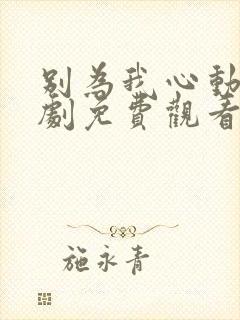 別為我心動
劇免費觀看
施永青